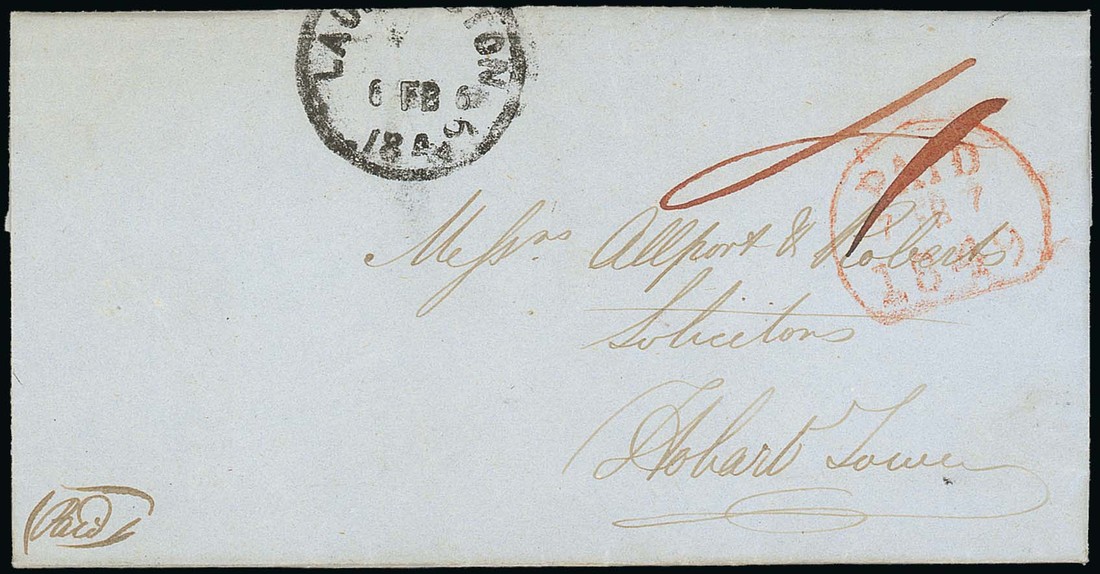 LAUNCESTON
6 FB 6
1845
PAID
7
1849
Messrs Allport & Roberts
Solicitors
Hobart Town
Paid